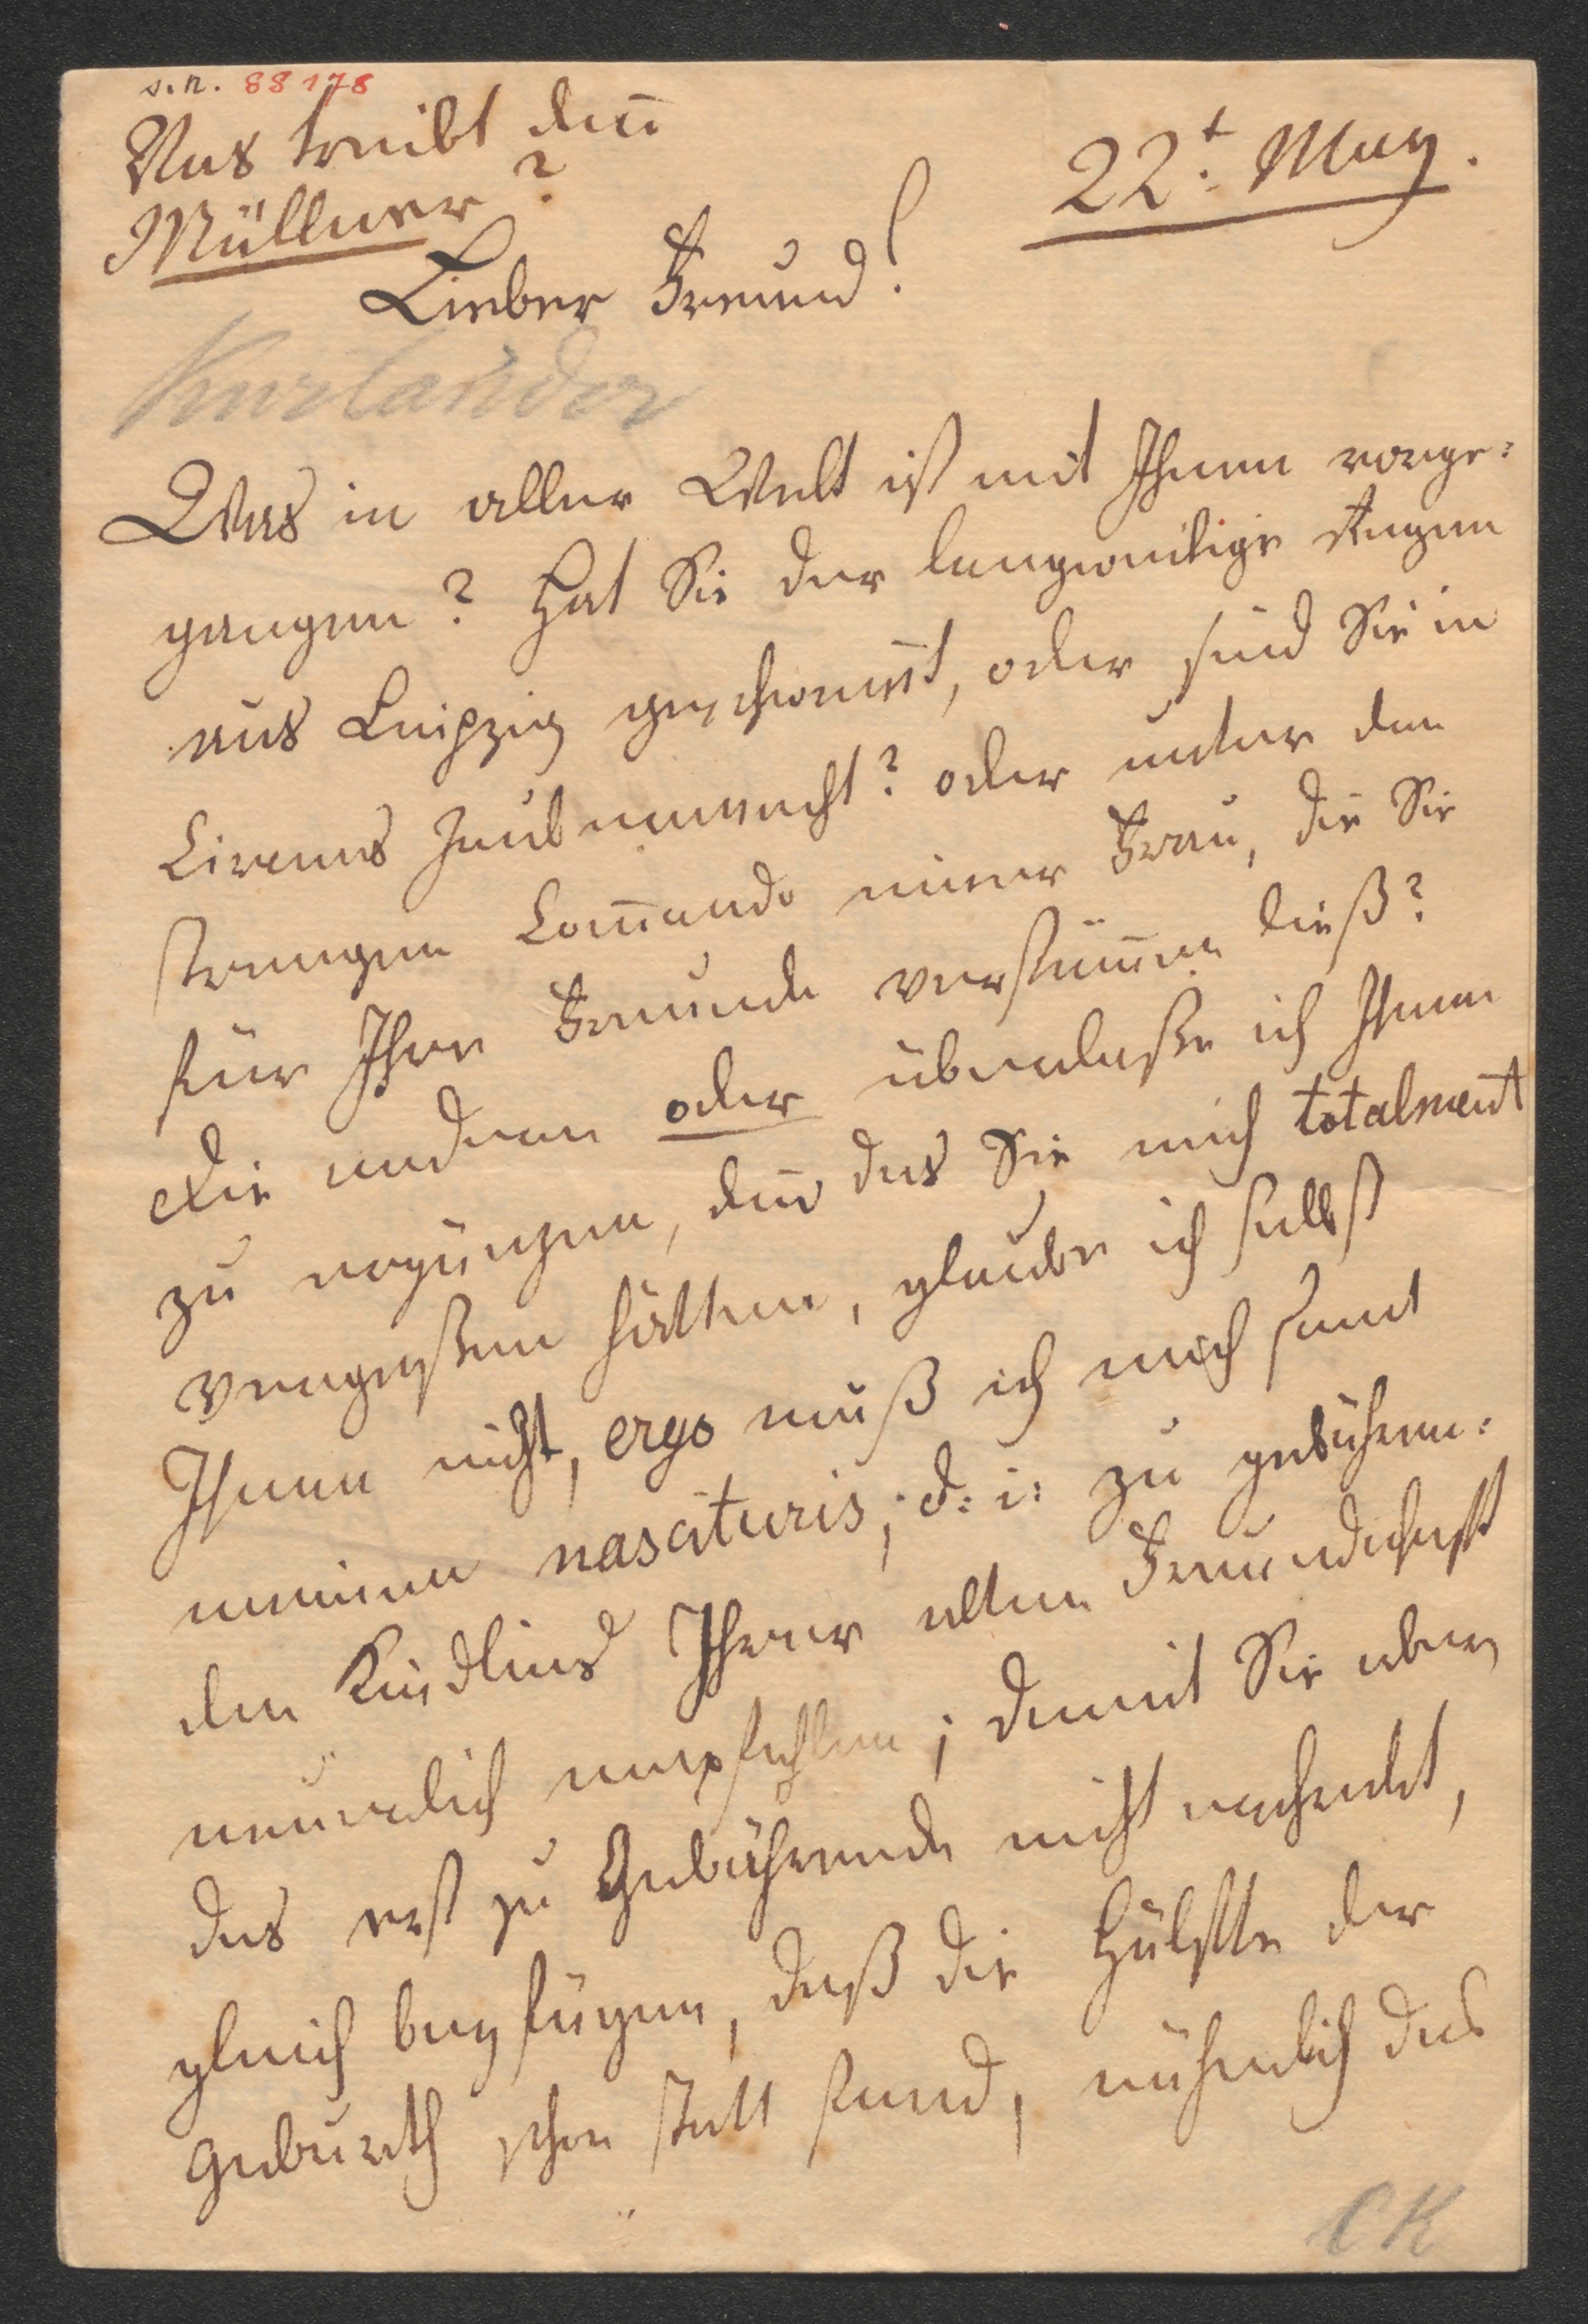 s.n. 88178
Was treibt den̄
Müllner?
22t. May.
Lieber Freund!
Kurländer
Was in aller Welt ist mit Ihnen vorge:
gangen? Hat Sie der langweilige Regen
aus Leipzig geschwem̄t, oder sind Sie in
Circens Zaubermacht? oder unter dem
strengen Com̄ando einer Frau, die Sie
für Ihre Freunde verstum̄en ließ?
Die andern oder überlaße ich Ihnen
zu ergänzen, den̄ das Sie mich totalment
vergeßen hätten, glaube ich selbst
Ihnen nicht, ergo muß ich mich samt
meinen nascituris, d: i: zu gebähren:
den Kindleins Ihrer alten Freundschaft
neuerlich empfehlen; damit Sie aber
das erst zu Gebährende nicht erschreckt,
gleich beyfügen, daß die Hälfte der
Geburth schon statt fand, nähmlich das
CK